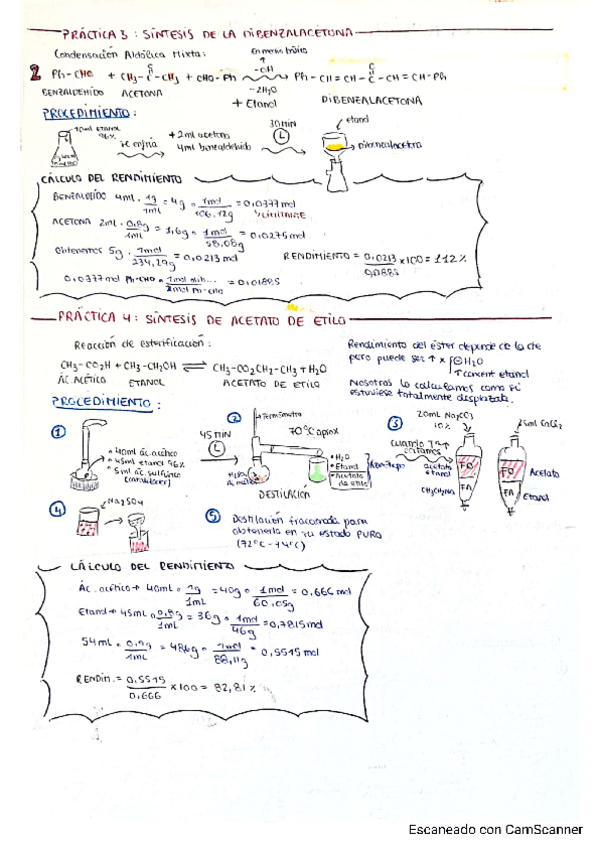 PRÁCTICA 3: SÍNTESIS DE LA DIBENZALACETONA
Condensación Aldólica Mixta:
En medio básico
2 Ph-CHO + CH3-C-CH3 + CHO-Ph -OH Ph-CH=CH-C-CH=CH-Ph
O O
-2H2O
BENZALDEHIDO ACETONA + Etanol DIBENZALACETONA
PROCEDIMIENTO:
10ml ETANOL 96%
se enfría
+2ml acetona
4ml benzaldehido
30 MIN
etanol
Dibenzalacetona
CÁLCULO DEL RENDIMIENTO
BENZALDEHIDO 4ml · 1g/1mL = 4g · 1mol/106.12g = 0,0377 mol
LIMITANTE
ACETONA 2ml · 0,8g/1mL = 1,6g · 1mol/58,08g = 0,0275 mol
Obtenemos 5g · 1mol/234,29g = 0,0213 mol
RENDIMIENTO = 0,0213/0,01885 x100 = 112%
0,0377 mol Ph-CHO · 1mol dib.../2mol Ph-CHO = 0,01885
PRÁCTICA 4: SÍNTESIS DE ACETATO DE ETILO
Reacción de esterificación:
CH3-CO2H + CH3-CH2OH ⇌ CH3-CO2CH2-CH3 + H2O
ÁC. ACÉTICO ETANOL ACETATO DE ETILO
Rendimiento del éster depende de la cte
pero puede ser ↑ x H2O
↑ concent etanol
Nosotros lo calculamos como si
estuviese totalmente desplazada.
PROCEDIMIENTO:
1
40ml ác. acético
45ml etanol 96%
5ml ác. sulfúrico
(catalizador)
45 MIN
2
Termómetro
70°C aprox
H2O
Etanol
Acetato de etilo
Azeótropo
DESTILACIÓN
3
20mL Na2CO3
10%
Cuando Tª↑
paramos
acetato
etanol
CH3CO2Na
FO
FA
5ml CaCl2
FO
FA
Acetato
Etanol
4
Na2SO4
5
Destilación fraccionada para
obtenerlo en su estado PURO
(72°C - 74°C)
CÁLCULO DEL RENDIMIENTO
Ác. acético → 40ml · 1g/1mL = 40g · 1mol/60,05g = 0,666 mol
Etanol → 45ml · 0,8g/1mL = 36g · 1mol/46g = 0,7815 mol
54mL · 0,9g/1mL = 48,6g · 1mol/88,11g = 0,5515 mol
RENDIM. = 0,5515/0,666 x100 = 82,81%
Escaneado con CamScanner